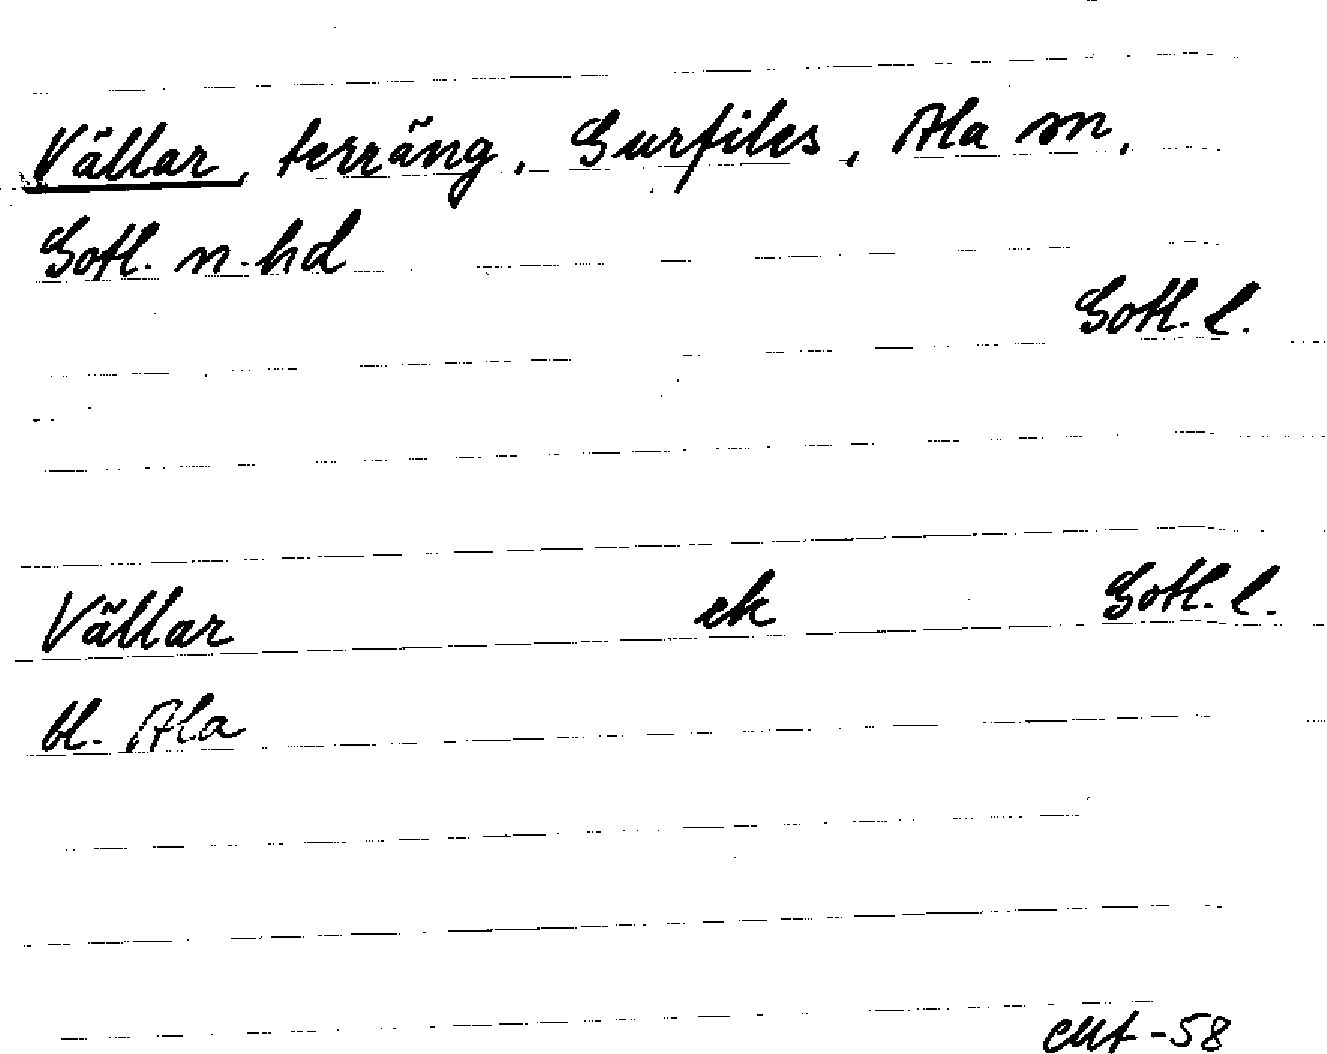 Vällar, terräng, Gurfiles, Ala sn,
Gotl. n. hd
Gotl. l.
Vällar ek Gotl. l.
bl. Ala
-58